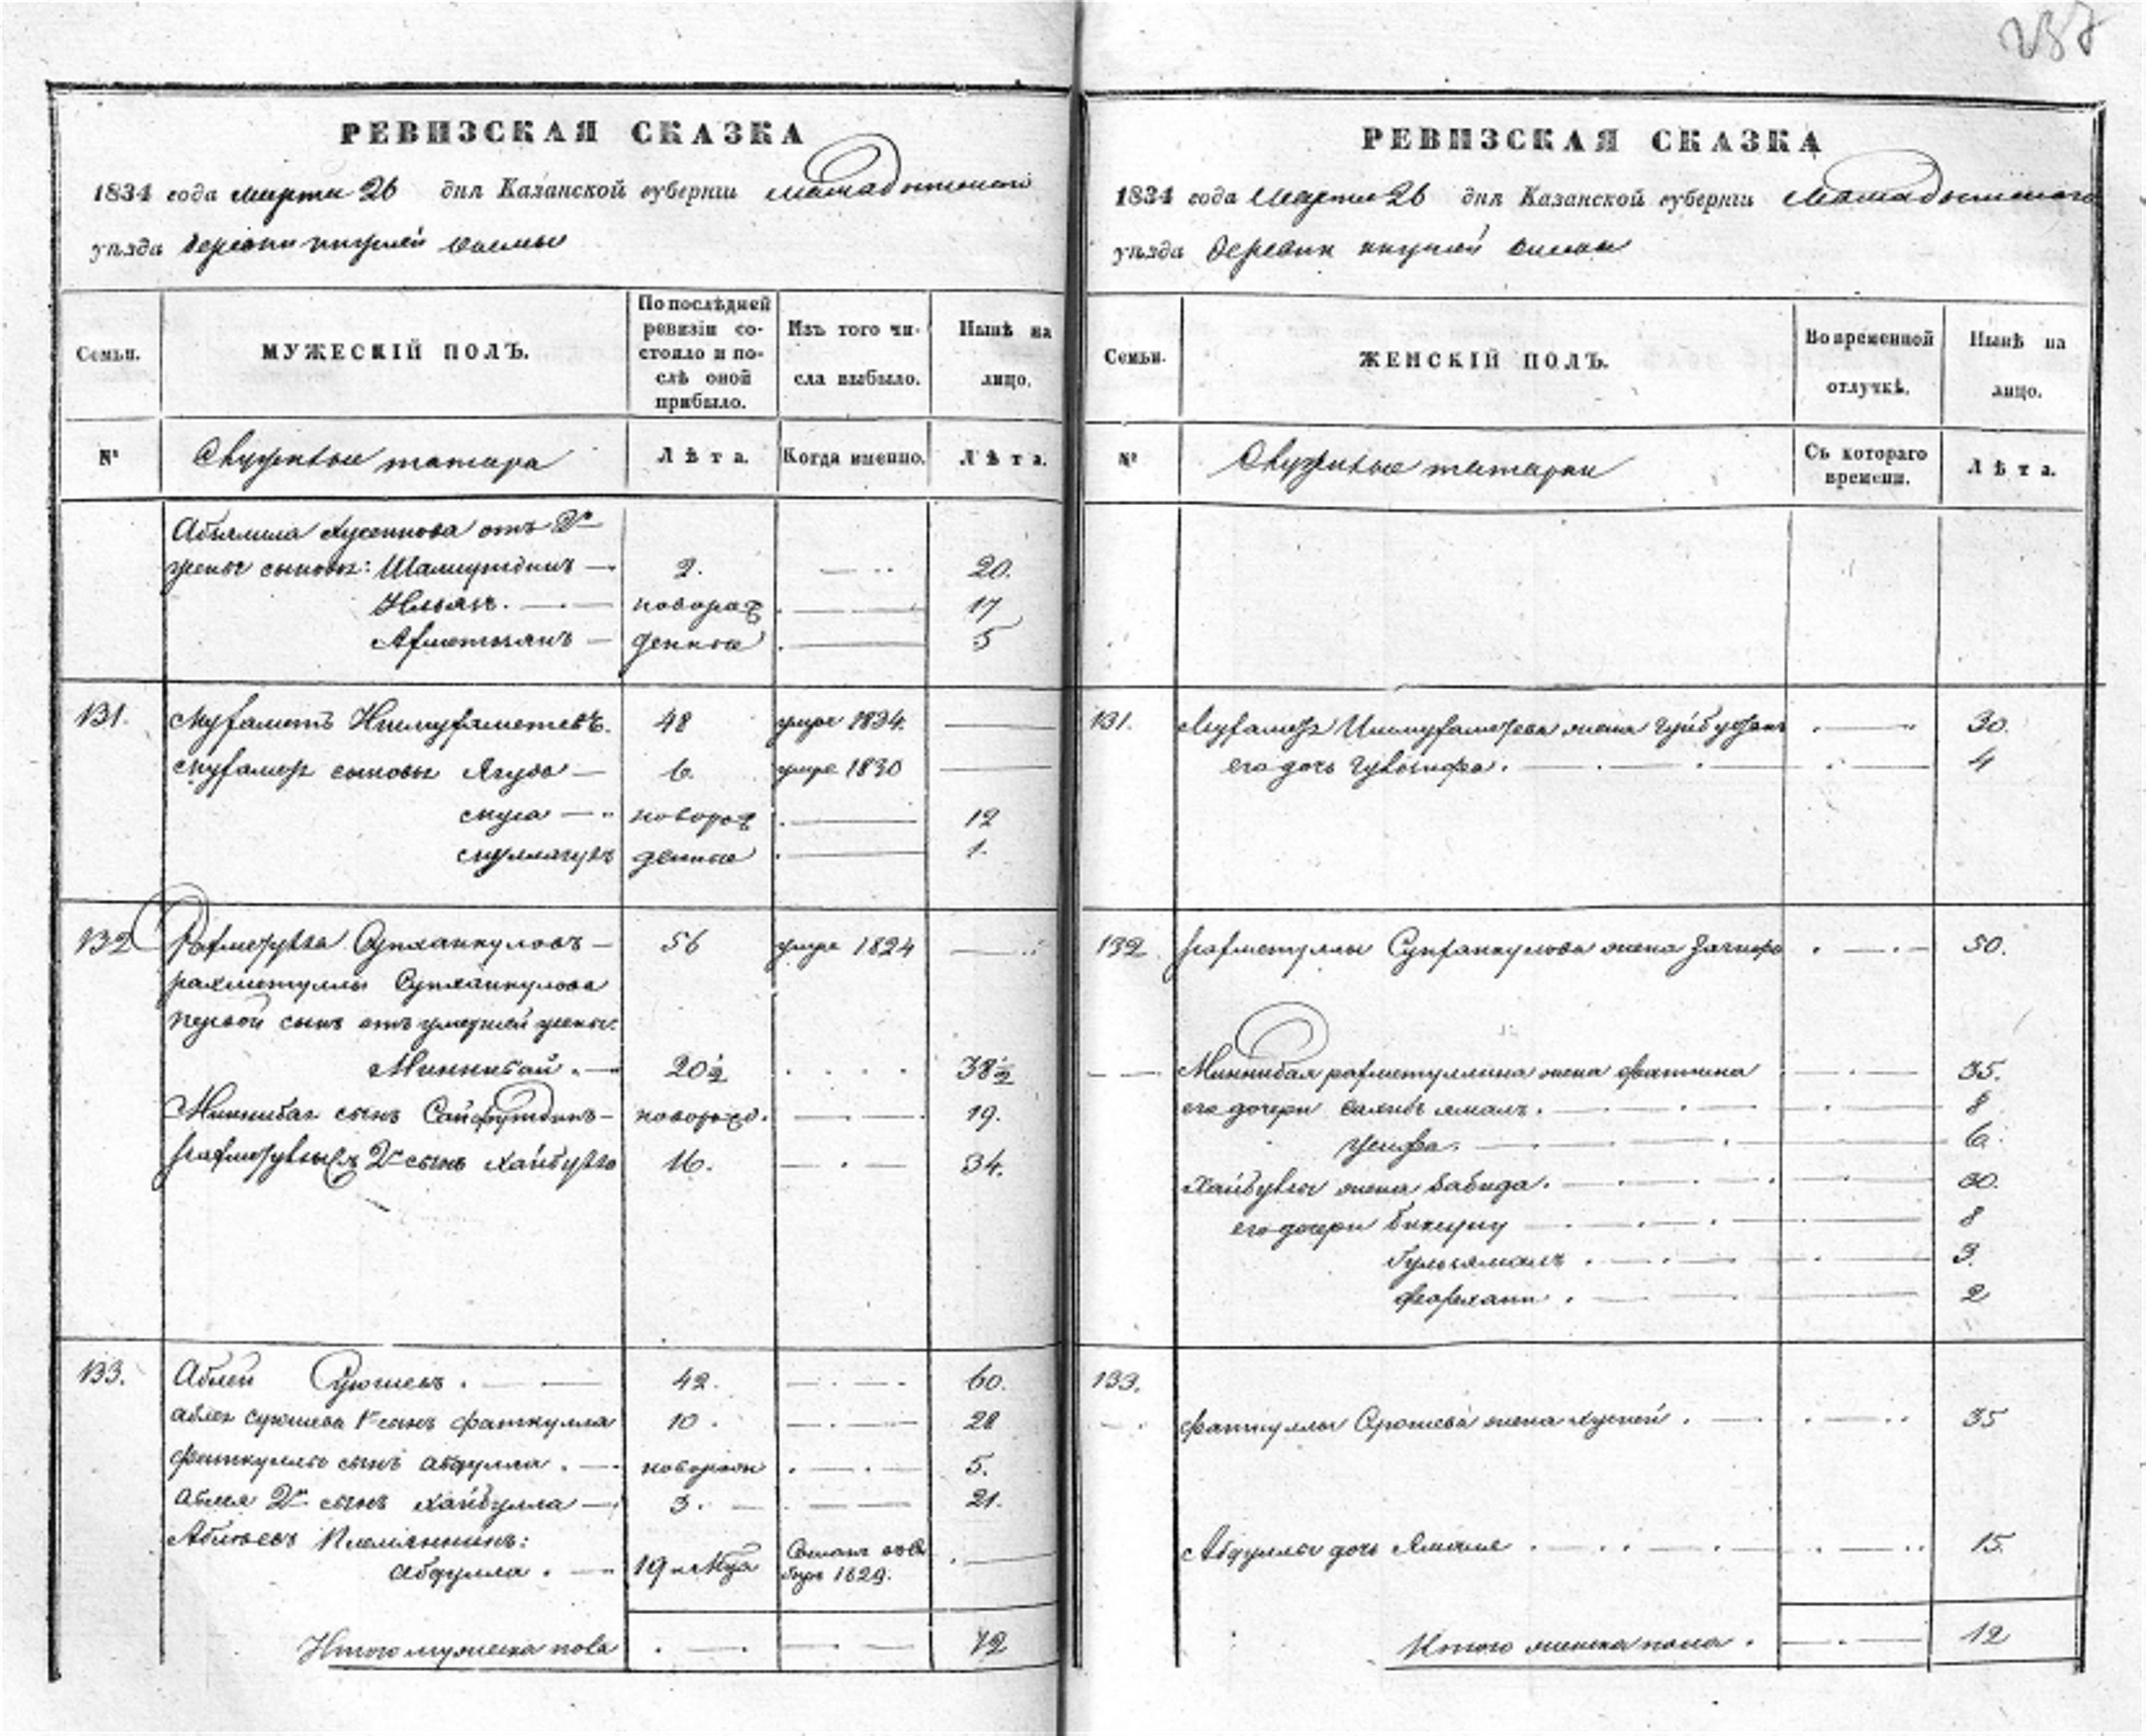 237
РЕВИЗСКАЯ СКАЗКА
1834 года марта 26 дня Казанской губерніи Мамадышскаго
уѣзда деревни
Семьи.
МУЖЕСКІЙ ПОЛЪ.
По послѣдней ревизіи состояло и послѣ оной прибыло.
Изъ того числа выбыло.
Нынѣ на лицо.
№
Служилые татара
Лѣта.
Когда именно.
Лѣта.
Абзялила Хусеинова отъ 2й
жены сыновья: Шамсутдинъ 2. 20.
Ильяс. новорож 17
Ахметзянъ денные 5
131. Мухаметъ Ишмухаметевъ. 48 умре 1834.
Мухаметя сыновья Ягудо 6 умре 1830
Муса новорож 12
денные 1.
132 Рахметулла Супханкуловъ 56 умре 1824
рахметуллы Супханкулова
первой сынъ отъ умершей жены:
Миннибай. 20½ 38½
Миннибая сынъ Сайфутдинъ новорожд. 19.
Рахметуллы 2й сынъ Хайбулла 16. 34.
133. Аблей Суюшевъ. 42. 60.
аблея суюшева 1й сынъ фаткулла 10. 28
фаткуллы сынъ абдулла. новорож 5.
аблея 2й сынъ хайбулла 3. 21.
Аблеевъ Племянникъ:
абдулла. 19 Сосланъ въ Сибирь 1829.
Итого мужеска пола 12
РЕВИЗСКАЯ СКАЗКА
1834 года Марта 26 дня Казанской губерніи Мамадышскаго
уѣзда деревни
Семьи.
ЖЕНСКІЙ ПОЛЪ.
Во временной отлучкѣ.
Нынѣ на лицо.
№
Служилые татарки
Съ котораго времени.
Лѣта.
131. Мухаметя Ишмухаметева жена 30.
его дочь 4
132 рахметуллы Супханкулова жена Загира 50.
Миннибая рахметуллина жена фатима 35.
его дочери 8
6.
Хайбуллы жена Бабида. 30.
его дочери 8
Гульзямалъ. 3.
2
133.
фаткуллы Суюшева жена 35
Абдуллы дочь 15.
Итого женска пола. 12